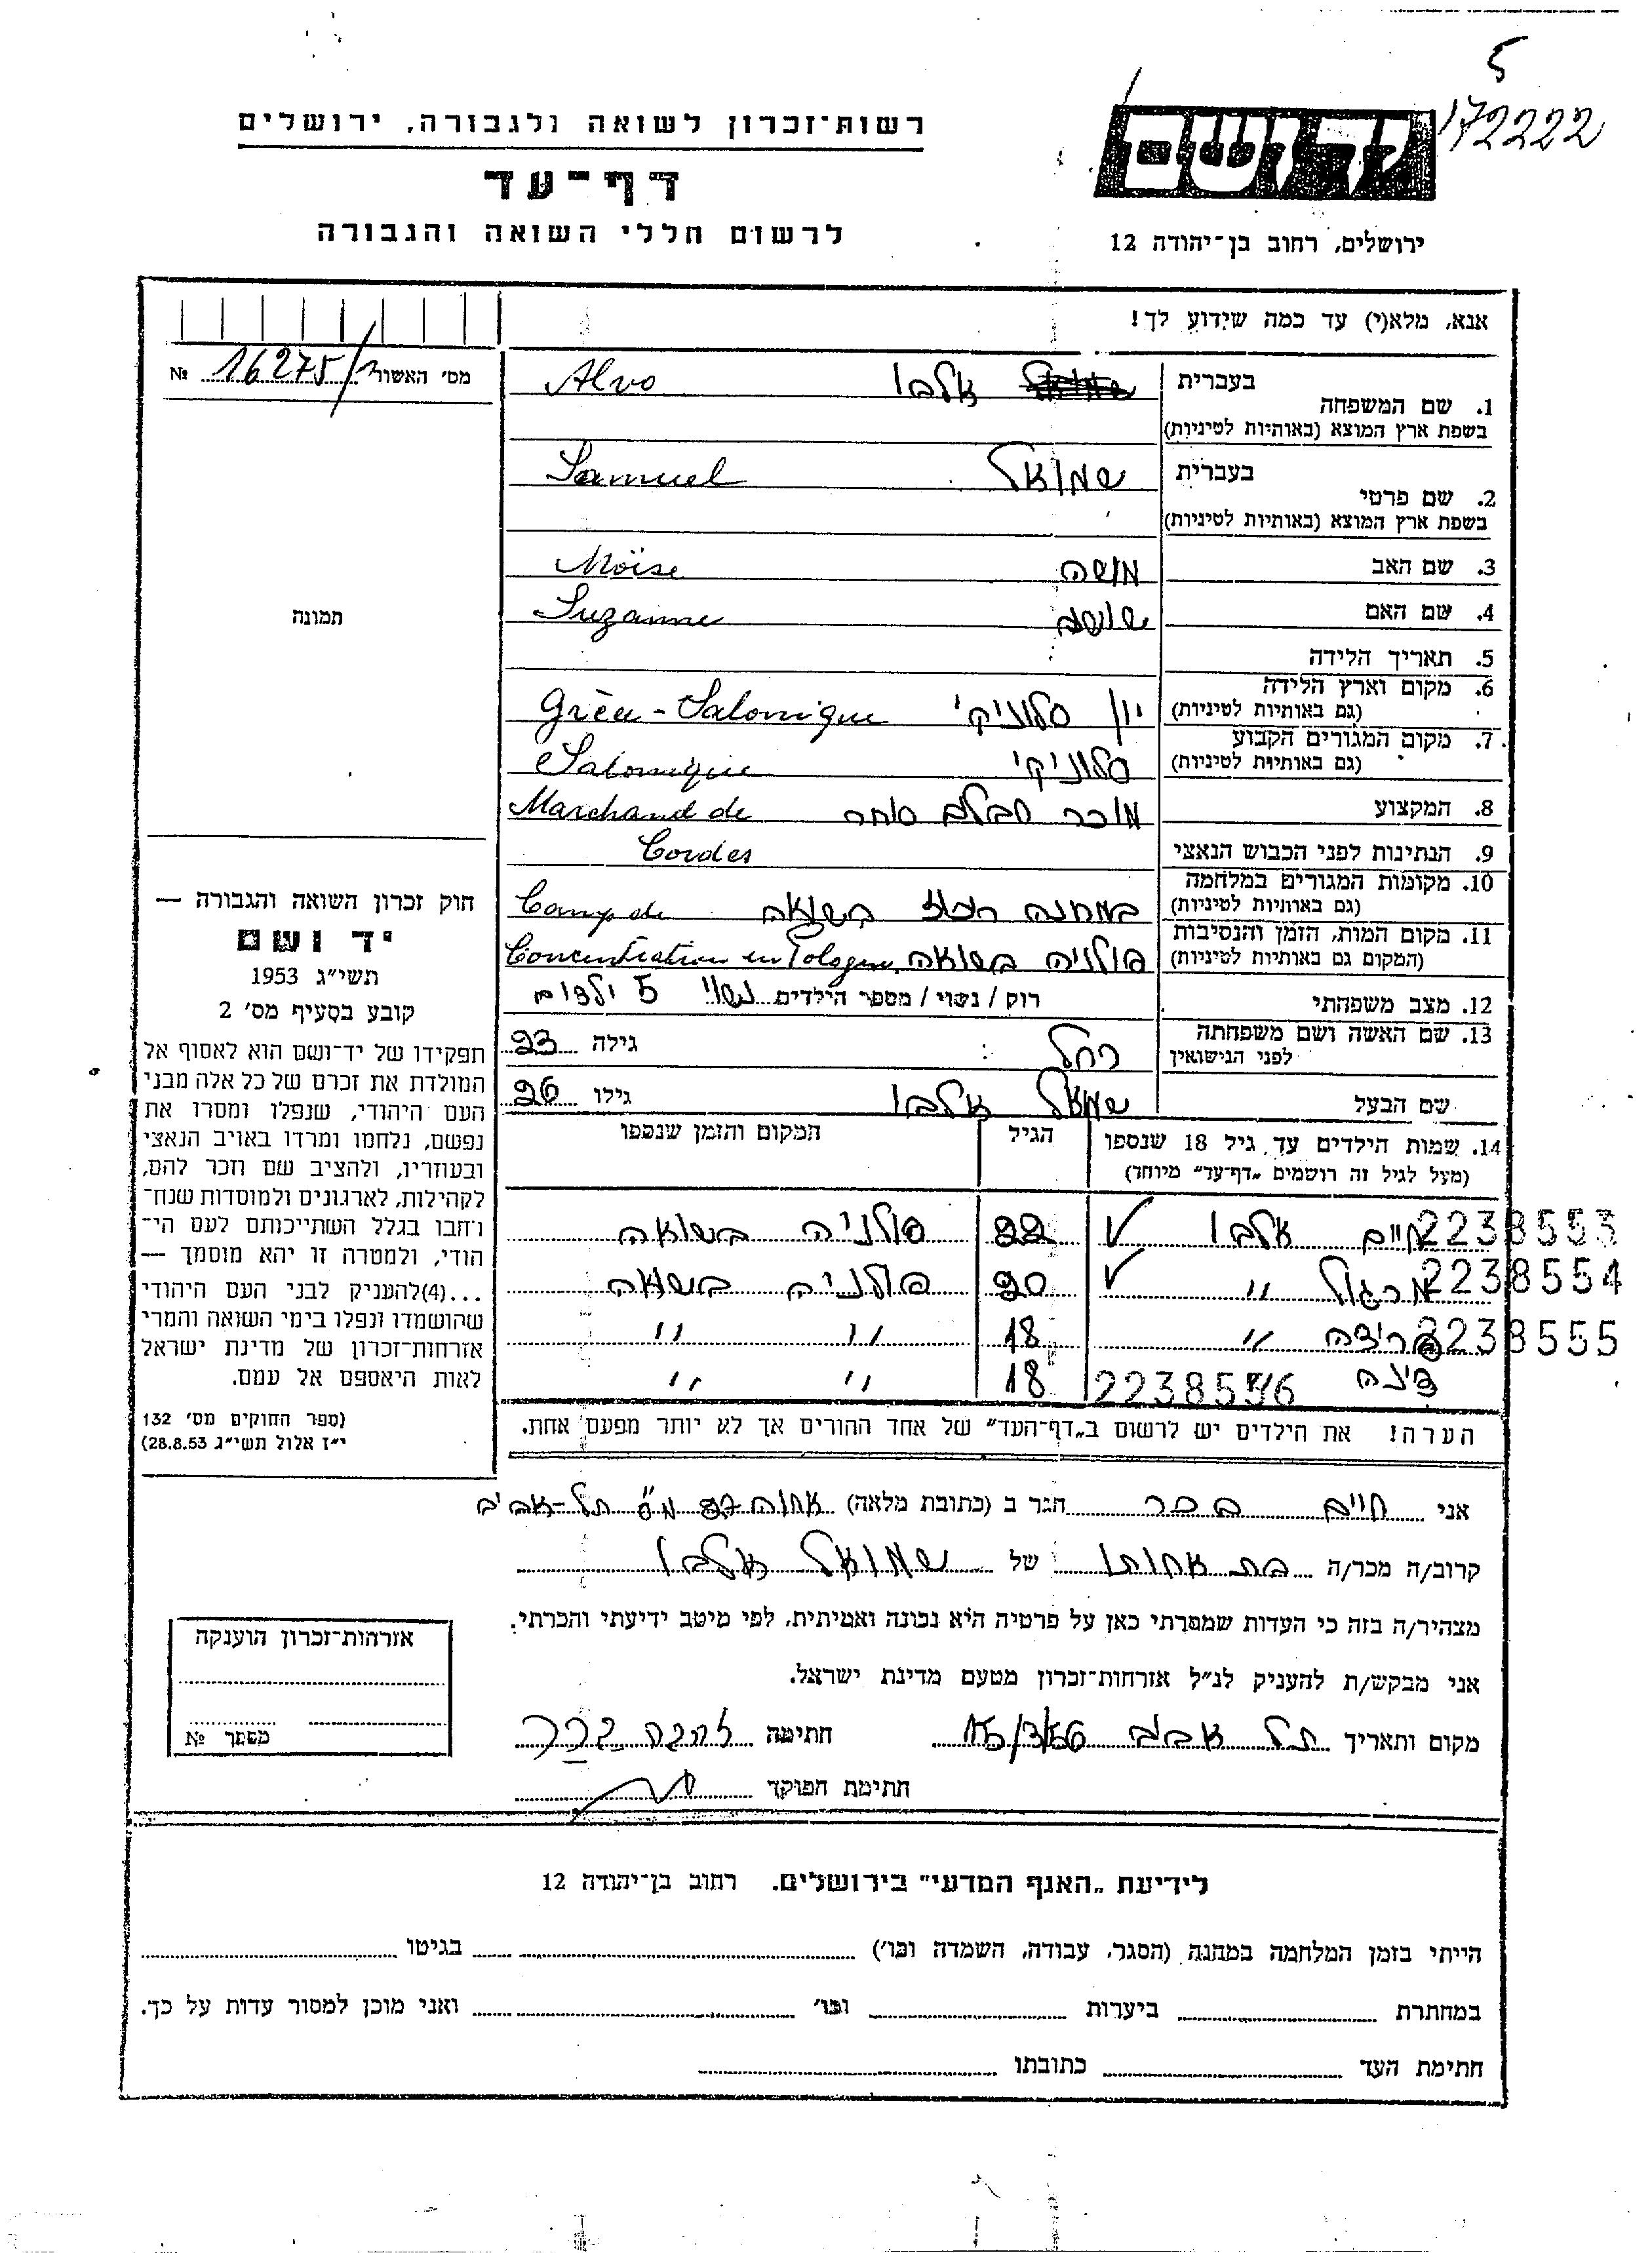 5
172222
רשות־זכרון לשואה ולגבורה, ירושלים
יד ושם
דף־עד
לרשום חללי השואה והגבורה
ירושלים, רחוב בן־יהודה 12
אנא, מלא(י) עד כמה שידוע לך!
מס׳ האשור 16275/ №
1. שם המשפחה בעברית אלבו Alvo
בשפת ארץ המוצא (באותיות לטיניות)
2. שם פרטי בעברית שמואל Samuel
בשפת ארץ המוצא (באותיות לטיניות)
3. שם האב משה Moïse
4. שם האם Suzanne
5. תאריך הלידה
6. מקום וארץ הלידה יון סלוניקי Grèce - Salonique
(גם באותיות לטיניות)
7. מקום המגורים הקבוע סלוניקי Salonique
(גם באותיות לטיניות)
8. המקצוע מוכר חבלים סוחר Marchand de
Cordes
9. הנתינות לפני הכבוש הנאצי
10. מקומות המגורים במלחמה במחנה רכוז בשואה Camp de
(גם באותיות לטיניות)
11. מקום המות, הזמן והנסיבות פולניה בשואה Concentration en Pologne
(המקום גם באותיות לטיניות)
12. מצב משפחתי רוק / נשוי / מספר הילדים נשוי 5 ילדים
13. שם האשה ושם משפחתה רחל גילה
לפני הנישואין
שם הבעל שמואל אלבו גילו
14. שמות הילדים עד גיל 18 שנספו הגיל המקום והזמן שנספו
(מעל לגיל זה רושמים "דף־עד" מיוחד)
חיים אלבו 22 פולניה בשואה 2238553
20 פולניה בשואה 2238554
פרידה " 18 " " 2238555
דינה " 18 " " 2238556
הערה! את הילדים יש לרשום ב"דף־העד" של אחד ההורים אך לא יותר מפעם אחת.
תמונה
חוק זכרון השואה והגבורה —
יד ושם
תשי״ג 1953
קובע בסעיף מס׳ 2
תפקידו של יד־ושם הוא לאסוף אל
המולדת את זכרם של כל אלה מבני
העם היהודי, שנפלו ומסרו את
נפשם, נלחמו ומרדו באויב הנאצי
ובעוזריו, ולהציב שם וזכר להם,
לקהילות, לארגונים ולמוסדות שנח־
רבו בגלל השתייכותם לעם הי־
הודי, ולמטרה זו יהא מוסמך —
...(4)להעניק לבני העם היהודי
שהושמדו ונפלו בימי השואה והמרי
אזרחות־זכרון של מדינת ישראל
לאות היאספם אל עמם.
(ספר החוקים מס׳ 132
י״ז אלול תשי״ג 28.8.53)
אני חיים בכר הגר ב (כתובת מלאה) תל-אביב
קרוב/ה מכר/ה בת אחותו של שמואל אלבו
מצהיר/ה בזה כי העדות שמסרתי כאן על פרטיה היא נכונה ואמיתית, לפי מיטב ידיעתי והכרתי.
אני מבקש/ת להעניק לנ״ל אזרחות־זכרון מטעם מדינת ישראל.
מקום ותאריך תל אביב 15/3/56 חתימה
חתימת הפוקד
אזרחות־זכרון הוענקה
מספר №
לידיעת "האגף המדעי" בירושלים. רחוב בן־יהודה 12
הייתי בזמן המלחמה במחנה (הסגר, עבודה, השמדה וכו׳) בגיטו
במחתרת ביערות וכו׳ ואני מוכן למסור עדות על כך.
חתימת העד כתובתו